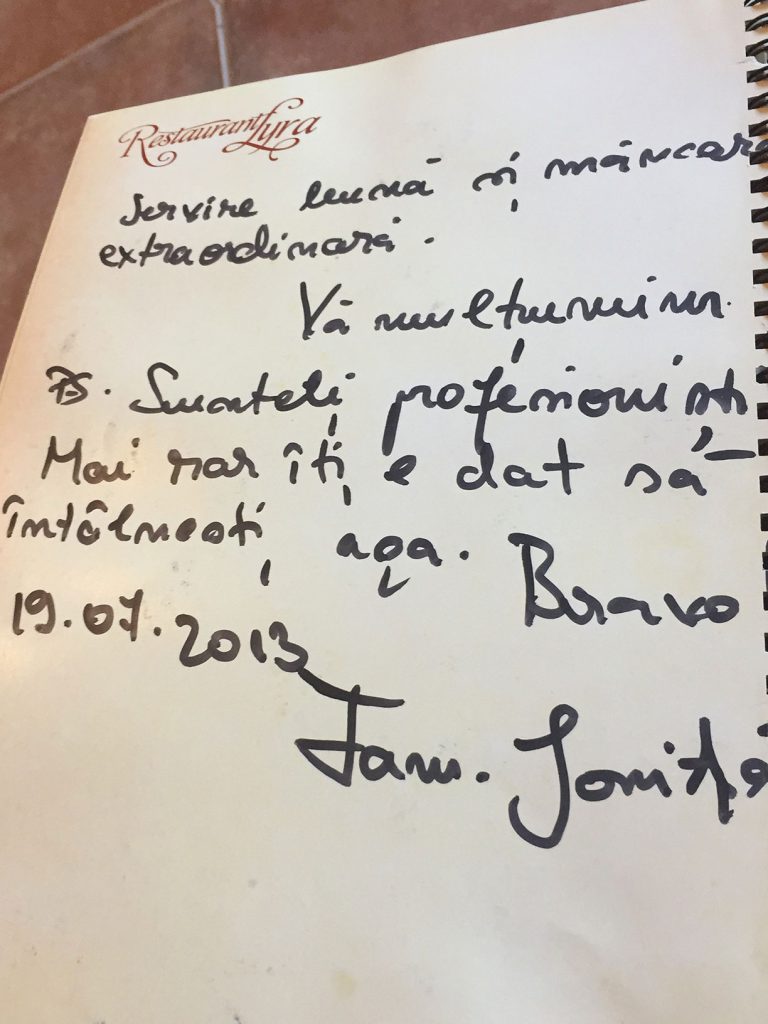 Restaurant Lyra
Servire bună și mâncare
extraordinară.
Vă mulțumim.
PS. Sunteți profesioniști
Mai rar îți e dat să-
întâlnești așa. Bravo
19.07.2013
Fam. Ioniță